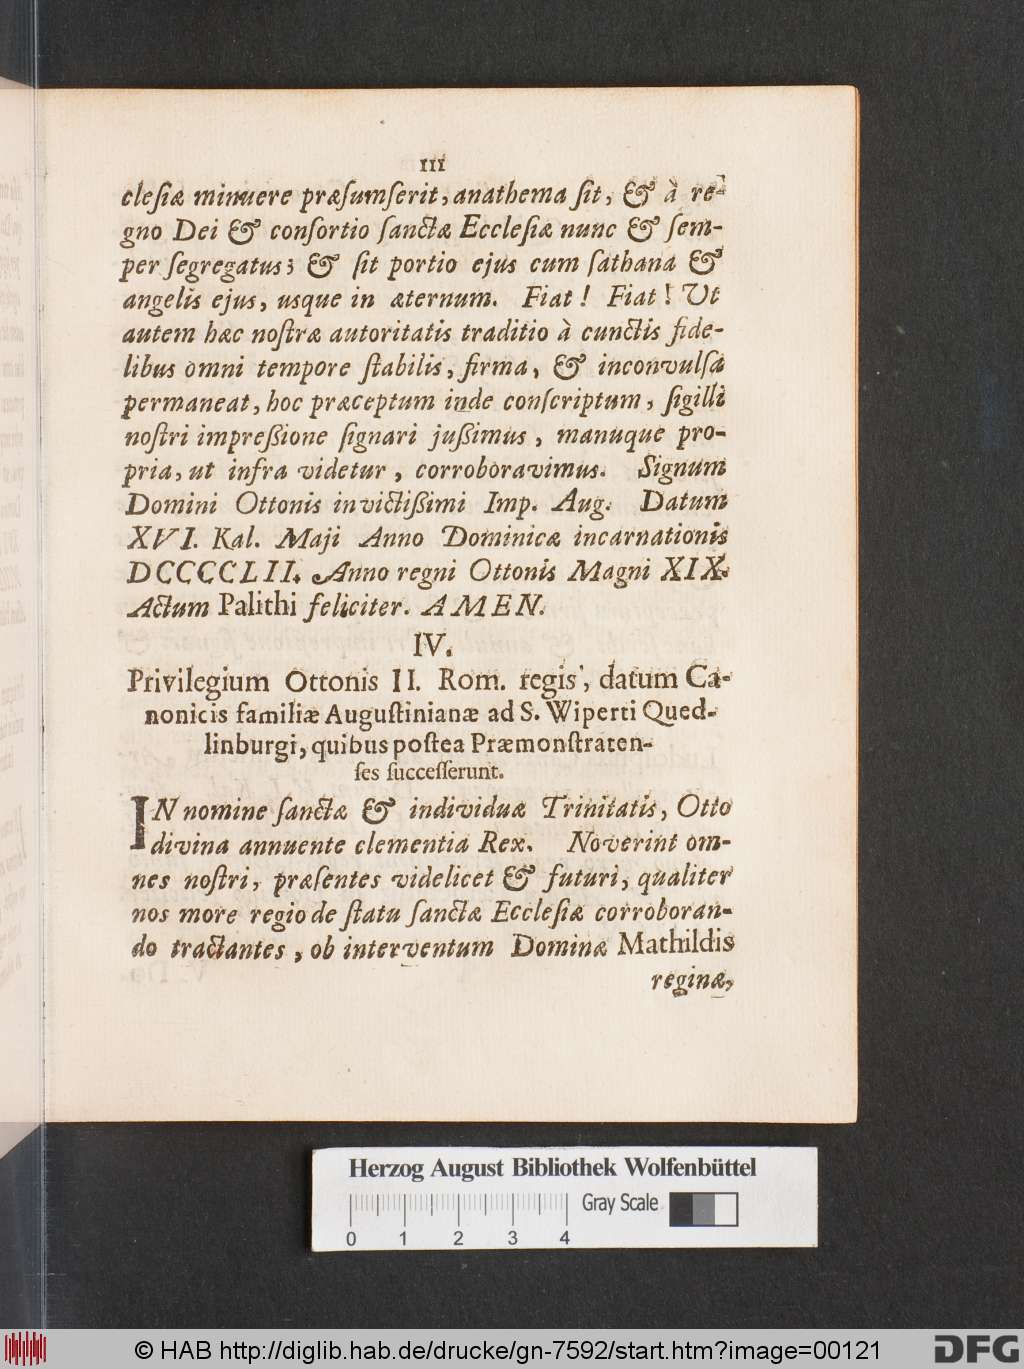 111
cleſiæ minuere præſumſerit, anathema ſit, & à re-
gno Dei & conſortio ſanctæ Eccleſiæ nunc & ſem-
per ſegregatus; & ſit portio ejus cum ſathana &
angelis ejus, usque in æternum. Fiat! Fiat! Ut
autem hæc noſtræ autoritatis traditio à cunctis fide-
libus omni tempore ſtabilis, firma, & inconvulſa
permaneat, hoc præceptum inde conſcriptum, ſigilli
noſtri impreßione ſignari jußimus, manuque pro-
pria, ut infra videtur, corroboravimus. Signum
Domini Ottonis invictißimi Imp. Aug. Datum
XVI. Kal. Maji Anno Dominicæ incarnationis
DCCCCLII. Anno regni Ottonis Magni XIX.
Actum Palithi feliciter. AMEN.
IV.
Privilegium Ottonis II. Rom. regis, datum Ca-
nonicis familiæ Auguſtinianæ ad S. Wiperti Qued-
linburgi, quibus poſtea Præmonſtraten-
ſes ſucceſſerunt.
IN nomine ſanctæ & individuæ Trinitatis, Otto
divina annuente clementia Rex. Noverint om-
nes noſtri, præſentes videlicet & futuri, qualiter
nos more regio de ſtatu ſanctæ Eccleſiæ corroboran-
do tractantes, ob interventum Dominæ Mathildis
reginæ,
Herzog August Bibliothek Wolfenbüttel
Gray Scale
0 1 2 3 4
© HAB http://diglib.hab.de/drucke/gn-7592/start.htm?image=00121
DFG